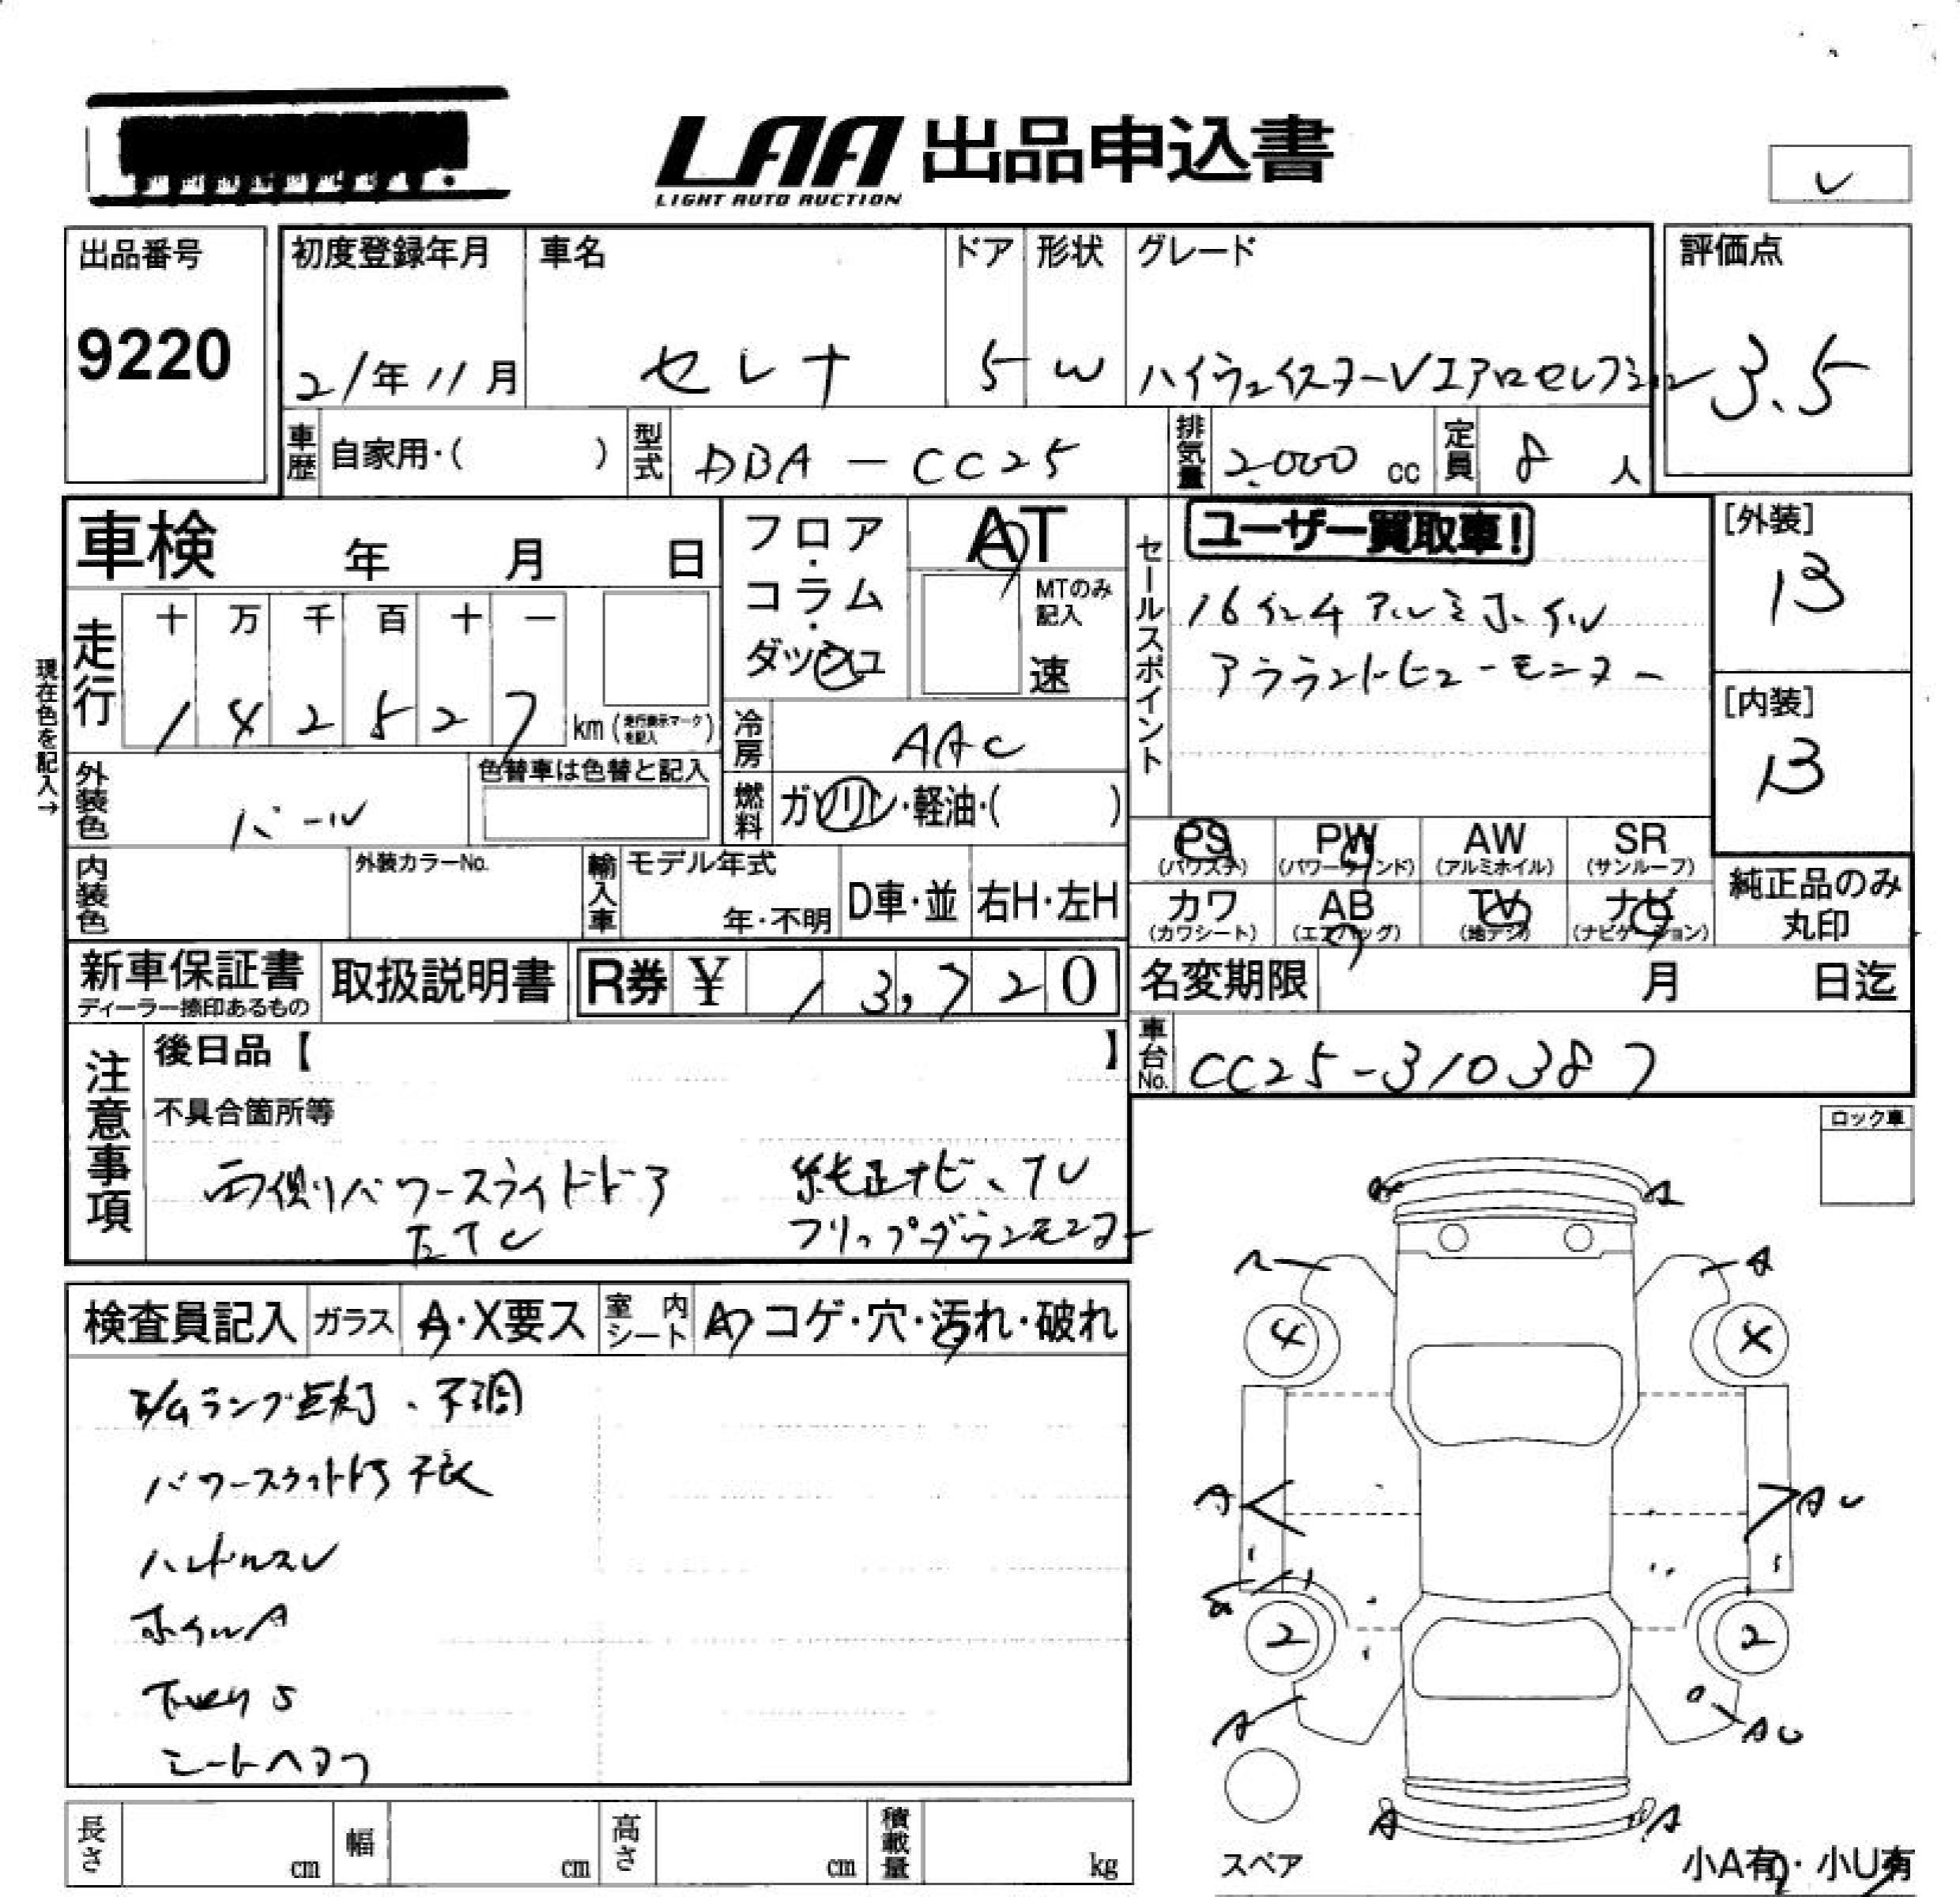 LAA 出品申込書
LIGHT AUTO AUCTION
レ
出品番号
9220
初度登録年月
21年11月
車名
セレナ
ドア
5
形状
W
グレード
ハイウェイスターVエアロセレクション
評価点
3.5
車歴 自家用・( )
型式 DBA-CC25
排気量 2,000 cc
定員 8 人
車検 年 月 日
フロア・コラム・ダッシュ
AT
MTのみ記入
速
セールスポイント
ユーザー買取車!
16インチアルミホイル
アラウンドビューモニター
[外装]
B
[内装]
B
現在色を記入→
走行
十 万 千 百 十 一
1 4 2 5 2 7 km (走行表示マークを記入)
冷房 AAC
外装色 パール
色替車は色替と記入
燃料 ガソリン・軽油・( )
PS (パワステ) PW (パワーウィンド) AW (アルミホイル) SR (サンルーフ)
内装色
外装カラーNo.
輸入車 モデル年式
年・不明
D車・並 右H・左H
カワ (カワシート) AB (エアバッグ) TV (地デジ) ナビ (ナビゲーション)
純正品のみ丸印
新車保証書
ディーラー捺印あるもの
取扱説明書
R券 ¥ 13,720
名変期限 月 日迄
車台No. CC25-310387
注意事項
後日品【 】
不具合箇所等
両側パワースライドドア 純正ナビ、TV
ETC フリップダウンモニター
ロック車
検査員記入 ガラス A・X要ス 室内シート A・コゲ・穴・汚れ・破れ
ランプ点灯、不調
パワースライドドア不良
ハンドルスレ
ホイルA
シートヘタリ
A A
A A
4 4
A A U
2 2
A A U
A A
スペア
小A有・小U有
長さ cm 幅 cm 高さ cm 積載量 kg